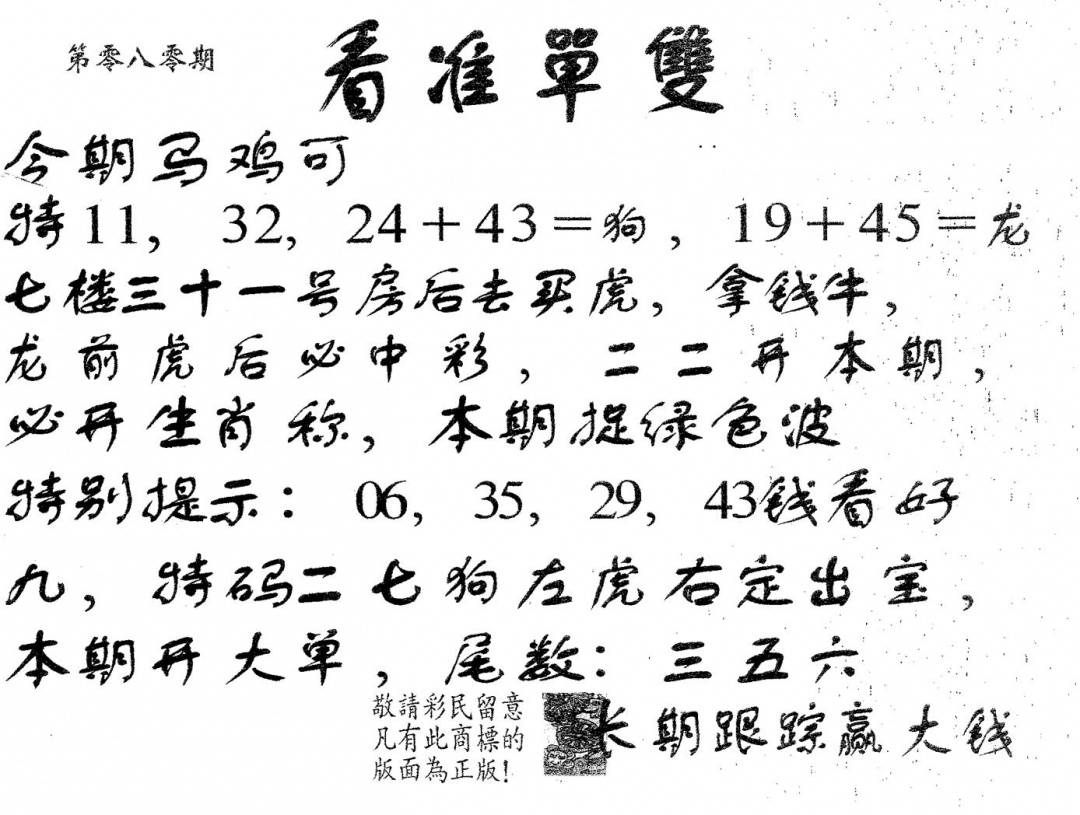 第零八零期
看准單雙
今期马鸡可
特11, 32, 24+43=狗, 19+45=龙
七楼三十一号房后去买虎, 拿钱牛,
龙前虎后必中彩, 二二开本期,
必开生肖称, 本期捉绿色波
特别提示: 06, 35, 29, 43钱看好
九, 特码二七狗左虎右定出宝,
本期开大单, 尾数: 三五六
敬請彩民留意
凡有此商標的
版面為正版!
长期跟踪赢大钱